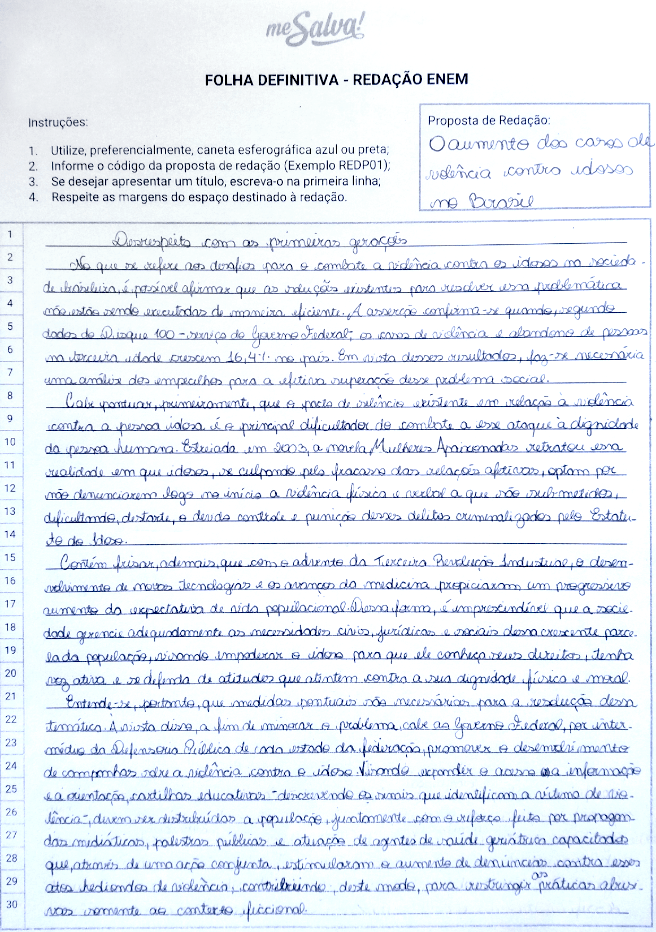 me Salva!
FOLHA DEFINITIVA - REDAÇÃO ENEM
Instruções:
1. Utilize, preferencialmente, caneta esferográfica azul ou preta;
2. Informe o código da proposta de redação (Exemplo REDP01);
3. Se desejar apresentar um título, escreva-o na primeira linha;
4. Respeite as margens do espaço destinado à redação.
Proposta de Redação:
O aumento dos casos de
violência contra idosos
no Brasil
1 Desrespeito com as primeiras gerações
2 No que se refere aos desafios para o combate a violência contra os idosos na socieda-
3 de brasileira, é possível afirmar que as soluções existentes para resolver essa problemática
4 não estão sendo executadas de maneira eficiente. A asserção confirma-se quando, segundo
5 dados do Disque 100 - serviço do Governo Federal-, os casos de violência e abandono de pessoas
6 na terceira idade crescem 16,4% no país. Em vista desses resultados, faz-se necessária
7 uma análise dos empecilhos para a efetiva superação desse problema social.
8 Cabe pontuar, primeiramente, que o pacto de silêncio existente em relação à violência
9 contra a pessoa idosa é o principal dificultador do combate a esse ataque à dignidade
10 da pessoa humana. Estreiada em 2003, a novela Mulheres Apaixonadas retratou essa
11 realidade em que idosos, se culpando pelo fracasso das relações afetivas, optam por
12 não denunciarem logo no início a violência física e verbal a que são submetidos,
13 dificultando, destarte, o devido controle e punição desses delitos criminalizados pelo Estatu-
14 to do Idoso.
15 Contém frisar, ademais, que com o advento da Terceira Revolução Industrial, o desen-
16 volvimento de novas tecnologias e os avanços da medicina propiciaram um progressivo
17 aumento da expectativa de vida populacional. Dessa forma, é imprescindível que a socie-
18 dade gerencie adequadamente as necessidades civis, jurídicas e sociais dessa crescente parce-
19 la da população, visando empoderar o idoso para que ele conheça seus direitos, tenha
20 voz ativa e se defenda de atitudes que atentem contra a sua dignidade física e moral.
21 Entende-se, portanto, que medidas pontuais são necessárias para a resolução dessa
22 temática. A vista disso, a fim de minorar o problema, cabe ao Governo Federal, por inter-
23 médio da Defensoria Pública de cada estado da federação, promover o desenvolvimento
24 de campanhas sobre a violência contra o idoso. Visando expandir o acesso a informação
25 e a orientação, cartilhas educativas - descrevendo os sinais que identificam a vítima de vio-
26 lência -, devem ser distribuídas a população, juntamente com o reforço feito por propagan-
27 das midiáticas, palestras públicas e atuação de agentes de saúde geriátrica capacitados
28 que, através de uma ação conjunta, estimularam o aumento de denúncias contra esses
29 atos hediondos de violência, contribuindo, deste modo, para restringir as práticas abusi-
30 vas somente ao contexto ficcional.